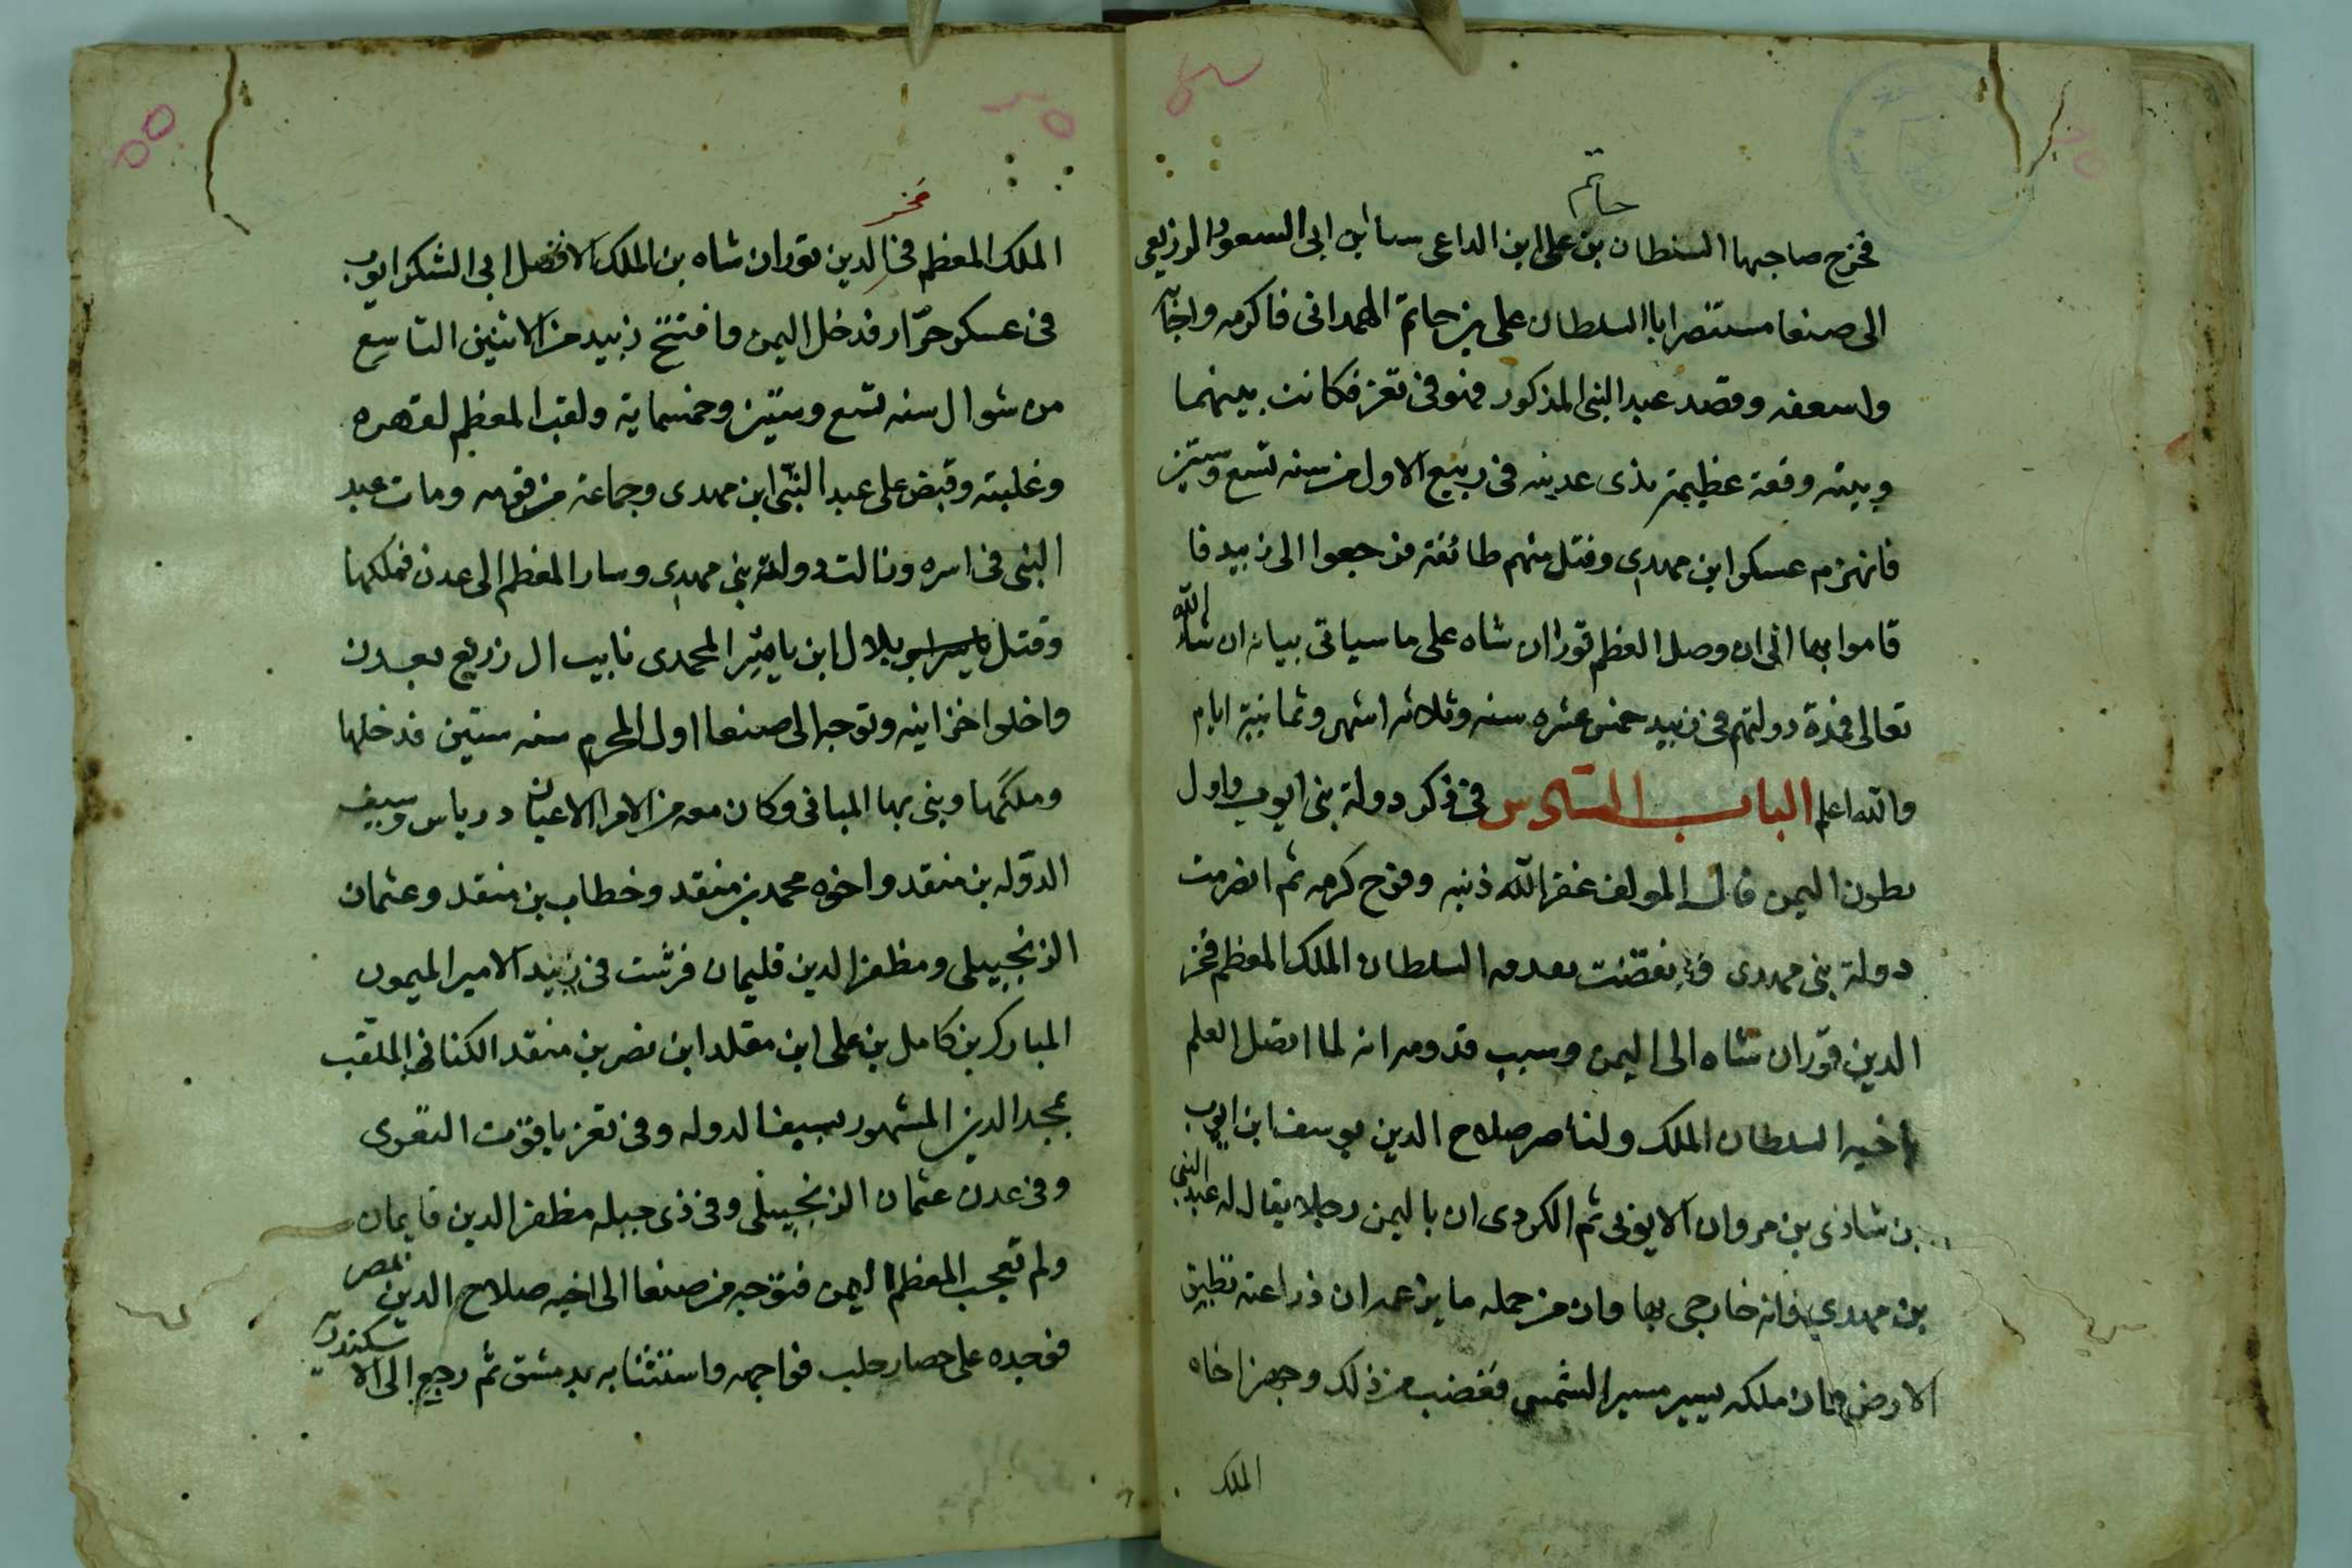 حاتم
فخرج صاحبها السلطان بن على ابن الداعى سبا بن ابى السعود الزريعى
الى صنعا مستنصرا باالسلطان على بن حاتم الهمدانى فاكرمه واجابه
واسعفه وقصد عبد النبى المذكور فى تعز فكانت بينهما
وبينه وقعة عظيمة بذى عدينه فى ربيع الاول من سنه تسع وستين
فانهزم عسكر ابن مهدى وقتل منهم طائفة فرجعوا الى زبيد فا
قاموا بها الى ان وصل المعظم توران شاه على ما سياتى بيانه ان شاء الله
تعالى فمدة دولتهم فى زبيد خمس عشره سنه وثلاثه اشهر وثمانية ايام
والله اعلم الباب السادس فى ذكر دولة بنى ايوب واول
بطون اليمن قال المولف غفر الله ذنبه وفرج كربه ثم انصرمت
دولة بنى مهدى بقدمه السلطان الملك المعظم فخر
الدين توران شاه الى اليمن وسبب قدومه انه لما اتصل العلم
باخيه السلطان الملك ولناصر صلاح الدين يوسف ابن ايوب
بن شاذى بن مروان الايوبى ثم الكردى ان باليمن رجلا يقال له عبد النبى
بن مهدى وانه خارجى بها وان من جمله ما يزعم ان دعته تطبق
الارض وان ملكه يسير مسير الشمس فغضب من ذلك وجهز اخاه
الملك
فخر
الملك المعظم فخر الدين توران شاه بن الملك الافضل ابى الشكر ايوب
فى عسكر جرّار فدخل اليمن وافتتح زبيد من الاثنين التاسع
من شوال سنه تسع وستين وخمسماية ولقب المعظم لقهره
وغلبته وقبض على عبد النبى ابن مهدى وجماعة من قومه ومات عبد
النبى فى اسره وزالت دولة بنى مهدى وسار المعظم الى عدن فملكها
وقتل بلال ابن ياسر المحمدى نايب ال زريع بعدن
واخلوا خزاينه وتوجه الى صنعا اول المحرم سنه ستين فدخلها
وملكها وبنى بها المبانى وكان معه من الامرا الاعيان درباس وسيف
الدوله بن منقد واخوه محمد بن منقد وخطاب بن منقد وعثمان
الزنجبيلى ومظفر الدين قليمان فرتبت فى زبيد الامير الميمون
المبارك بن كامل بن على ابن مقلد ابن نصر بن منقد الكنانى الملقب
بمجد الدين المشهور بسيف الدوله وفى تعز ياقوت التعزى
وفى عدن عثمان الزنجبيلى وفى ذى جبله مظفر الدين قايمان
ولم تعجب المعظم اليمن فتوجه من صنعا الى اخيه صلاح الدين بمصر
فوجده على حصار حلب فواجهه واستنابه بدمشق ثم رجع الى الا سكندريه